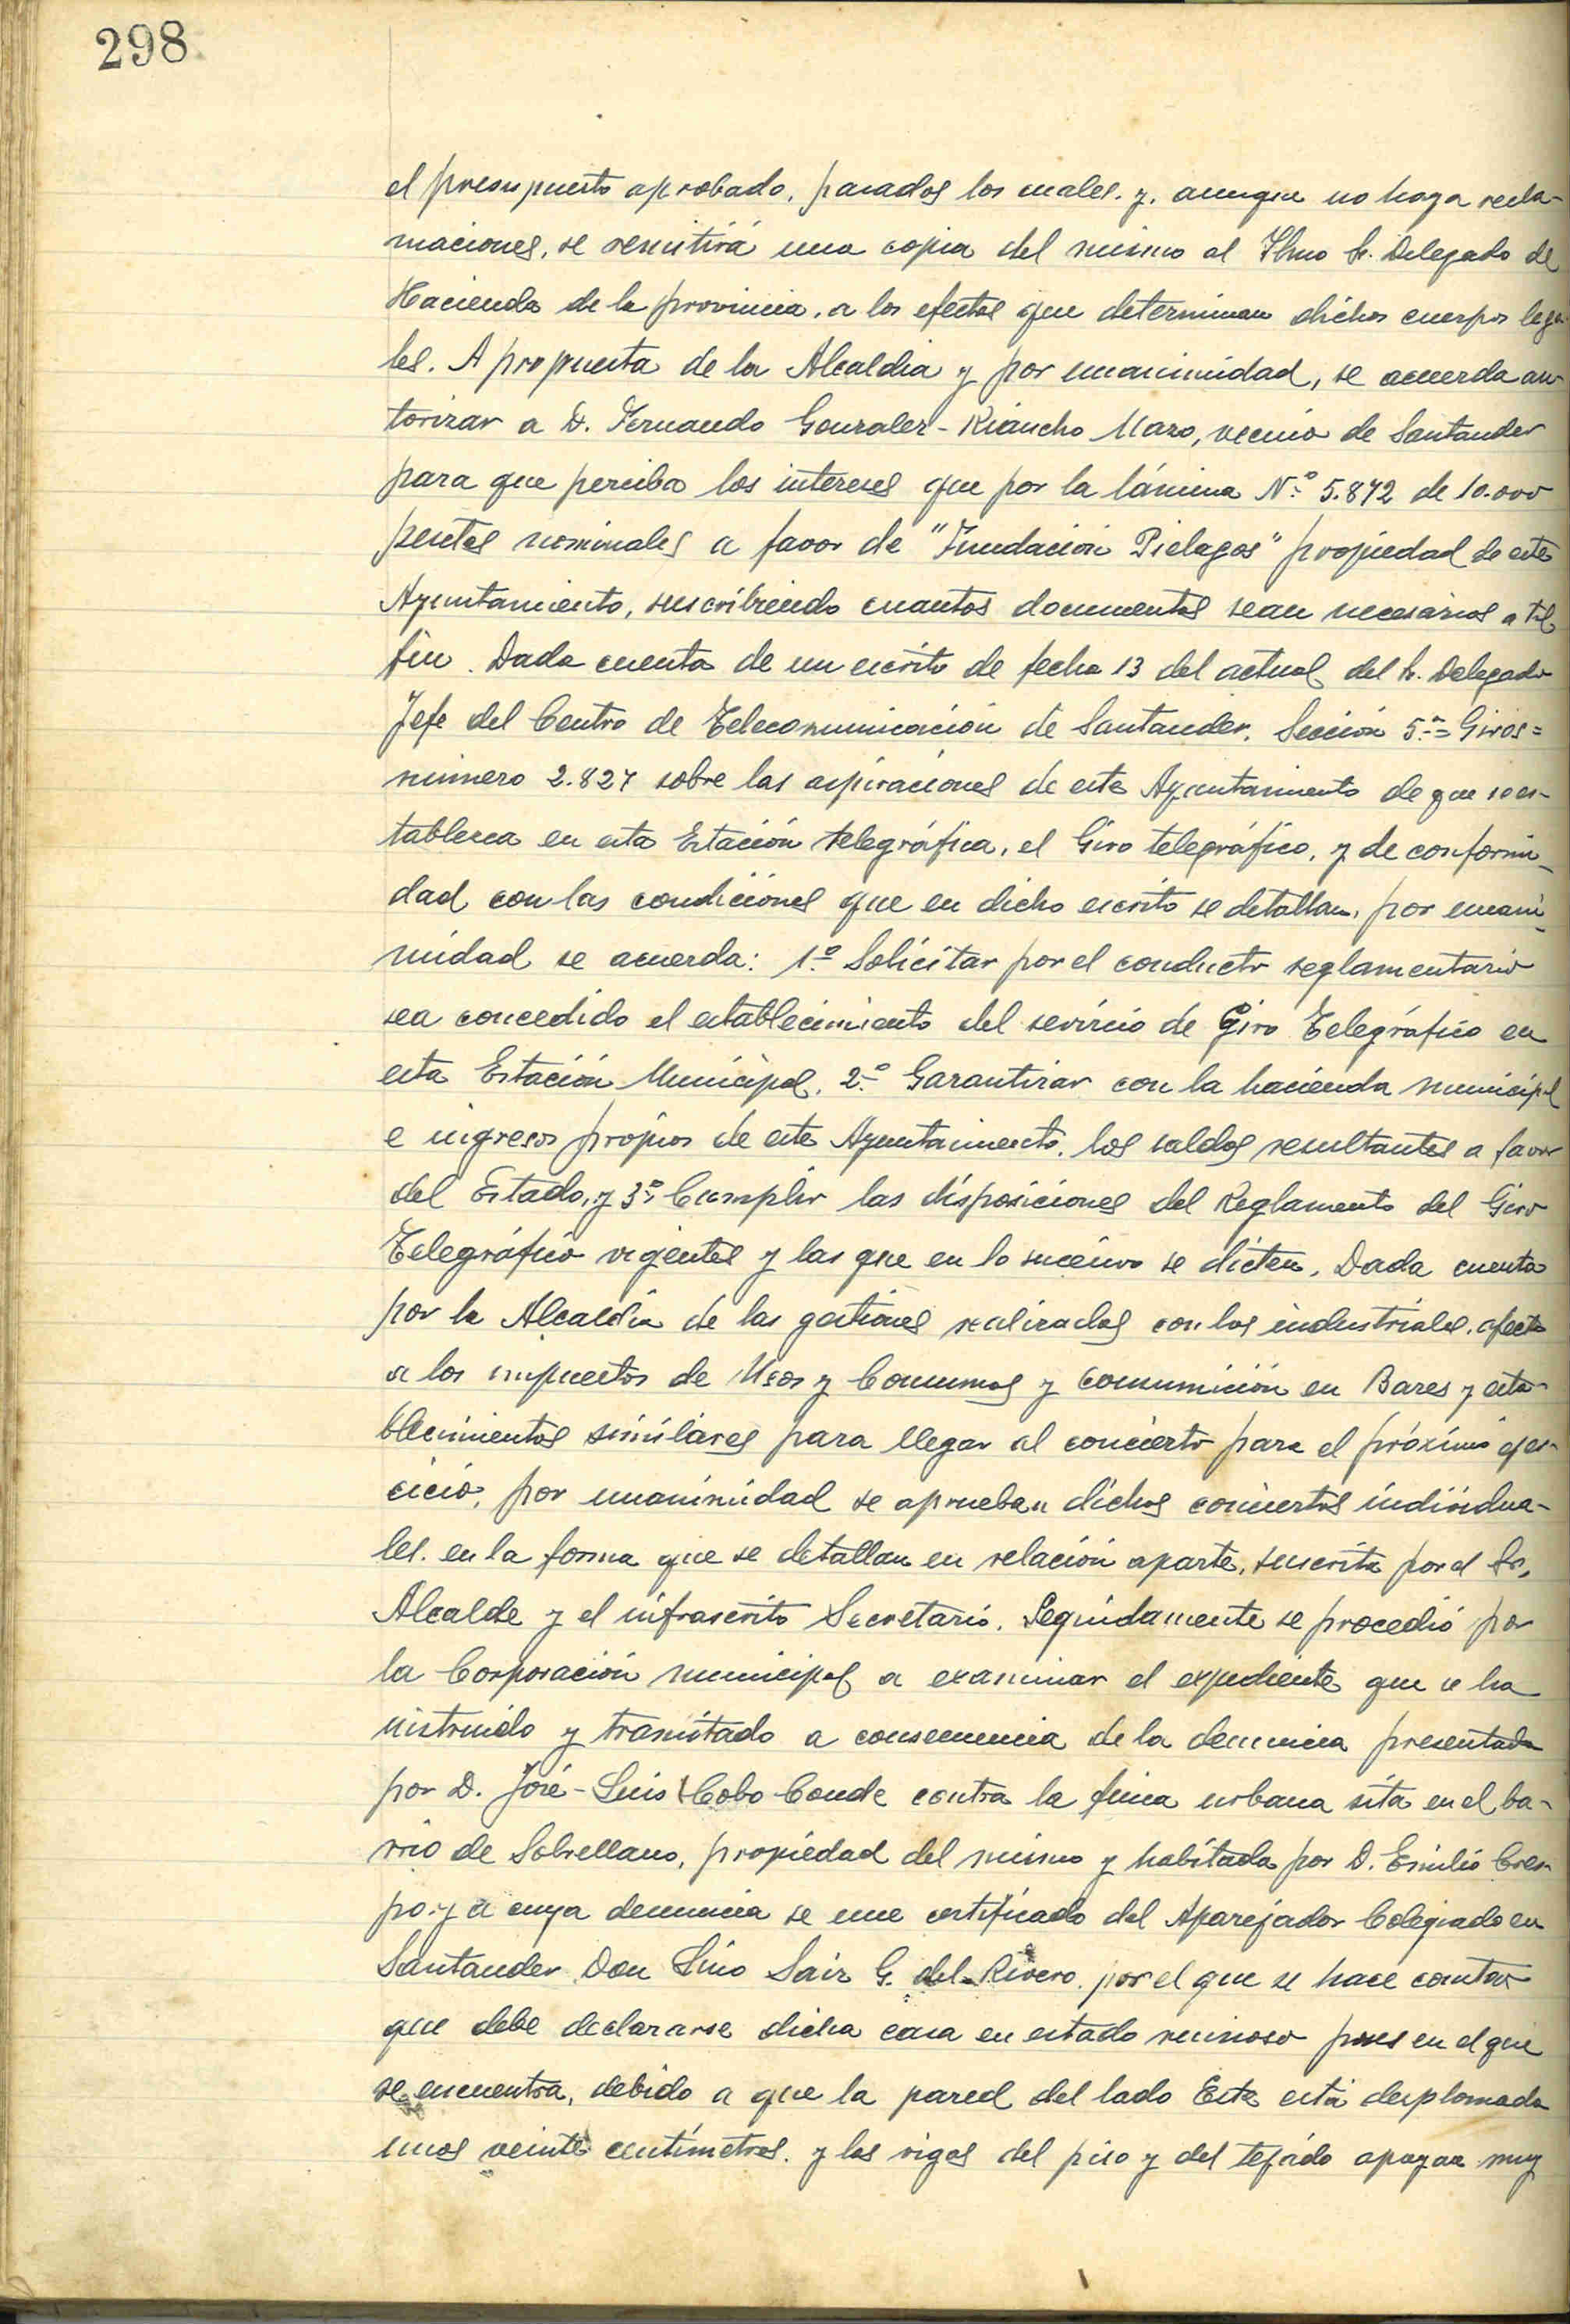 298
el presupuesto aprobado, pasados los cuales. y, aunque no haya recla-
maciones, se remitirá una copia del mismo al Ilmo Sr. Delegado de
Hacienda de la provincia, a los efectos que determinan dichos cuerpos lega-
les. A propuesta de la Alcaldia y por unanimidad, se acuerda au-
torizar a D. Fernando Gonzalez-Riancho Mazo, vecino de Santander
para que perciba los intereses que por la lámina N.º 5.872 de 10.000
pesetas nominales a favor de "Fundación Pielagos" propiedad de este
Ayuntamiento, suscribiendo cuantos documentos sean necesarios a tal
fin. Dada cuenta de un escrito de fecha 13 del actual del Sr. Delegado
Jefe del Centro de Telecomunicación de Santander. Sección 5.ª = Giros =
número 2.827 sobre las aspiraciones de este Ayuntamiento de que se es-
tablezca en esta Estación telegráfica, el Giro telegráfico, y de conformi-
dad con las condiciones que en dicho escrito se detallan, por unani-
midad se acuerda: 1.º Solicitar por el conducto reglamentario
sea concedido el establecimiento del servicio de Giro Telegráfico en
esta Estación Municipal. 2.º Garantizar con la hacienda municipal
e ingresos propios de este Ayuntamiento, los saldos resultantes a favor
del Estado, y 3.º Cumplir las disposiciones del Reglamento del Giro
Telegráfico vigentes y las que en lo sucesivo se dicten. Dada cuenta
por la Alcaldía de las gestiones realizadas con los industriales, afectos
a los impuestos de Usos y Consumos y consumición en Bares y esta-
blecimientos similares para llegar al concierto para el próximo ejer-
cicio, por unanimidad se aprueban dichos conciertos individua-
les. en la forma que se detallan en relación aparte, suscrita por el Sr.
Alcalde y el infrascrito Secretario. Seguidamente se procedió por
la Corporación municipal a examinar el expediente que se ha
instruido y tramitado a consecuencia de la denuncia presentada
por D. José-Luis Cobo Conde contra la finca urbana sita en el ba-
rrio de Sobrellano, propiedad del mismo y habitada por D. Emilio Cres-
po. y a cuya denuncia se une certificado del Aparejador Colegiado en
Santander Don Lino Saiz G. del Rivero. por el que se hace constar
que debe declararse dicha casa en estado ruinoso pues en el que
se encuentra, debido a que la pared del lado Este está desplomada
unos veinte centímetros. y las vigas del piso y del tejado apoyan muy